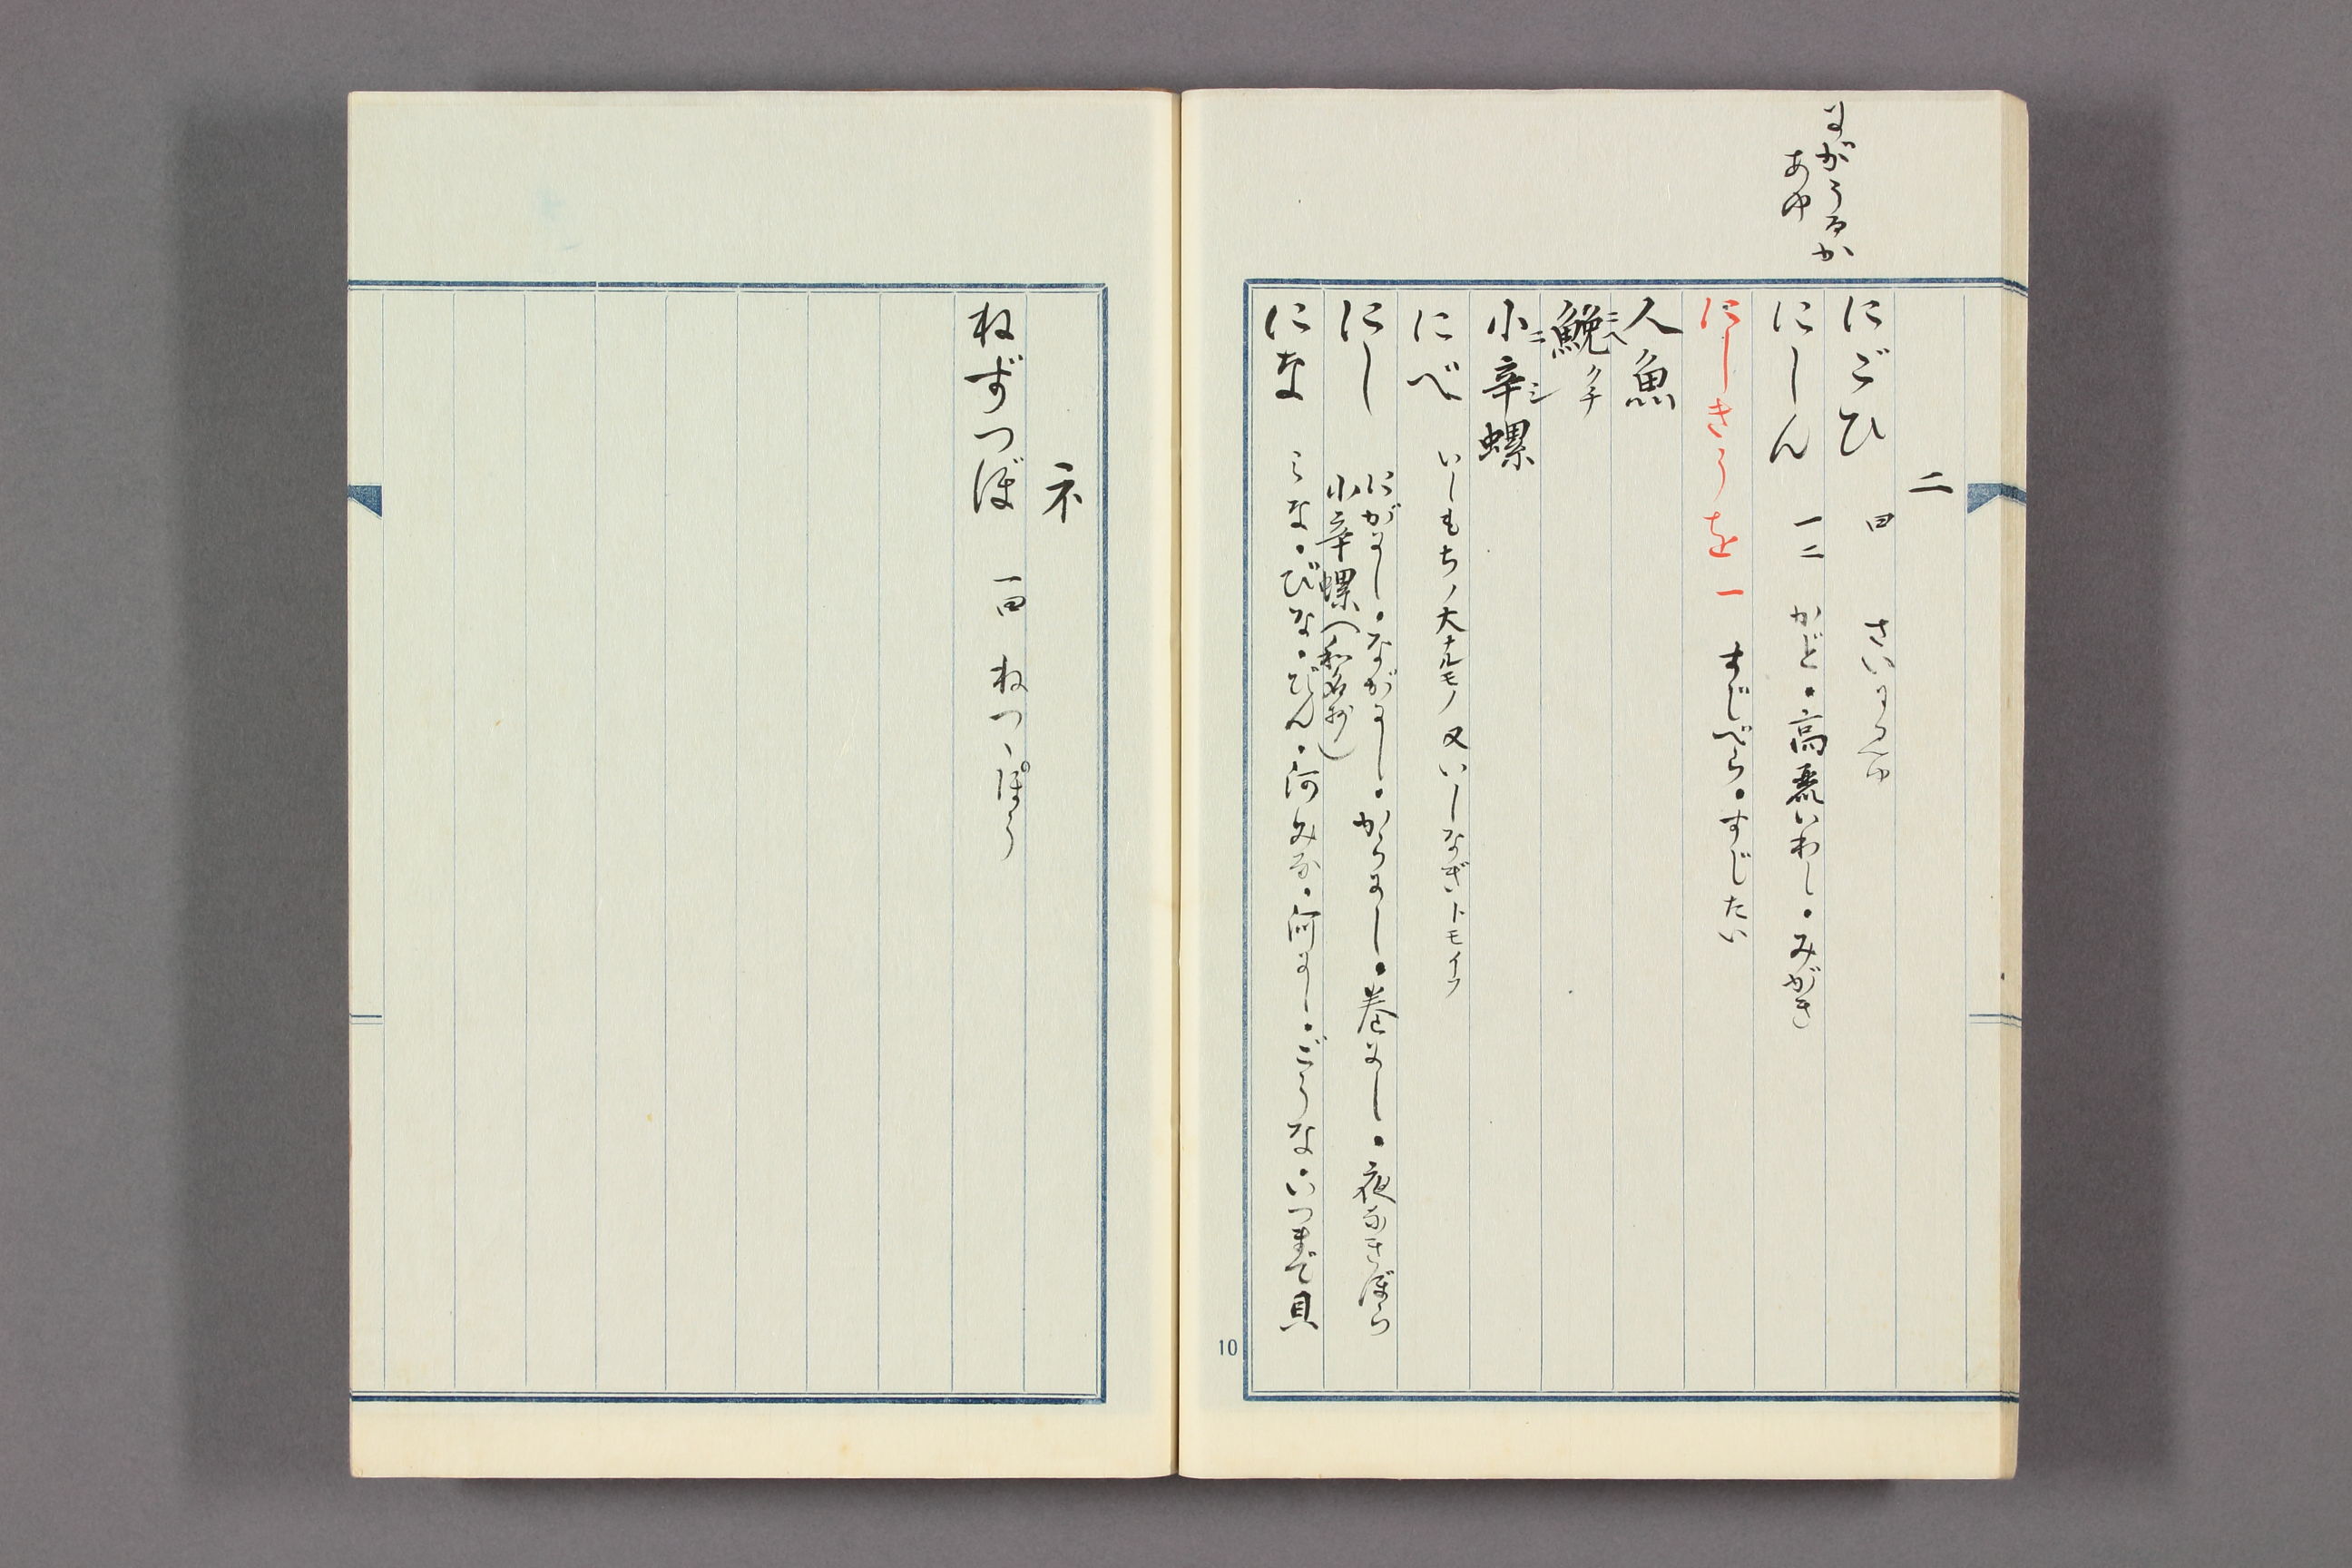 にがうるか
あゆ
ニ
にごひ 四 さいまる
にしん 一二 かど・高麗いわし・みがき
にしきうを 一 すじべら・すじたい
人魚
鮸 ニベ クチ
小辛螺 ニシ
にべ いしもちノ大ナルモノ 又いしなぎトモイフ
にし にがにし・ながにし・からにし・巻にし・夜なきぼら
小辛螺(和名抄)
にな みな・びな・びん・河みな・河にし・ごうな・いつまで貝
10
ネ
ねずつぼ 一四 ねつゝぽう